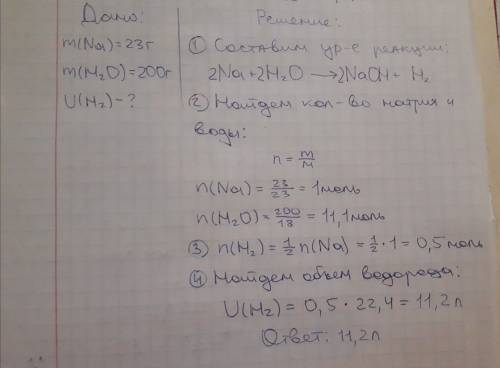 Дано:
m(Na)=23г
m(H₂O)=200г
U(H₂)-?
Решение:
① Составим ур-е реакции:
2Na+2H₂O→2NaOH+H₂
② Найдем кол-во натрия и
воды:
n=m/M
n(Na)=23/23=1моль
n(H₂O)=200/18=11,1моль
③ n(H₂)=1/2n(Na)=1/2·1=0,5моль
④ Найдем объем водорода:
U(H₂)=0,5·22,4=11,2л
Ответ: 11,2л